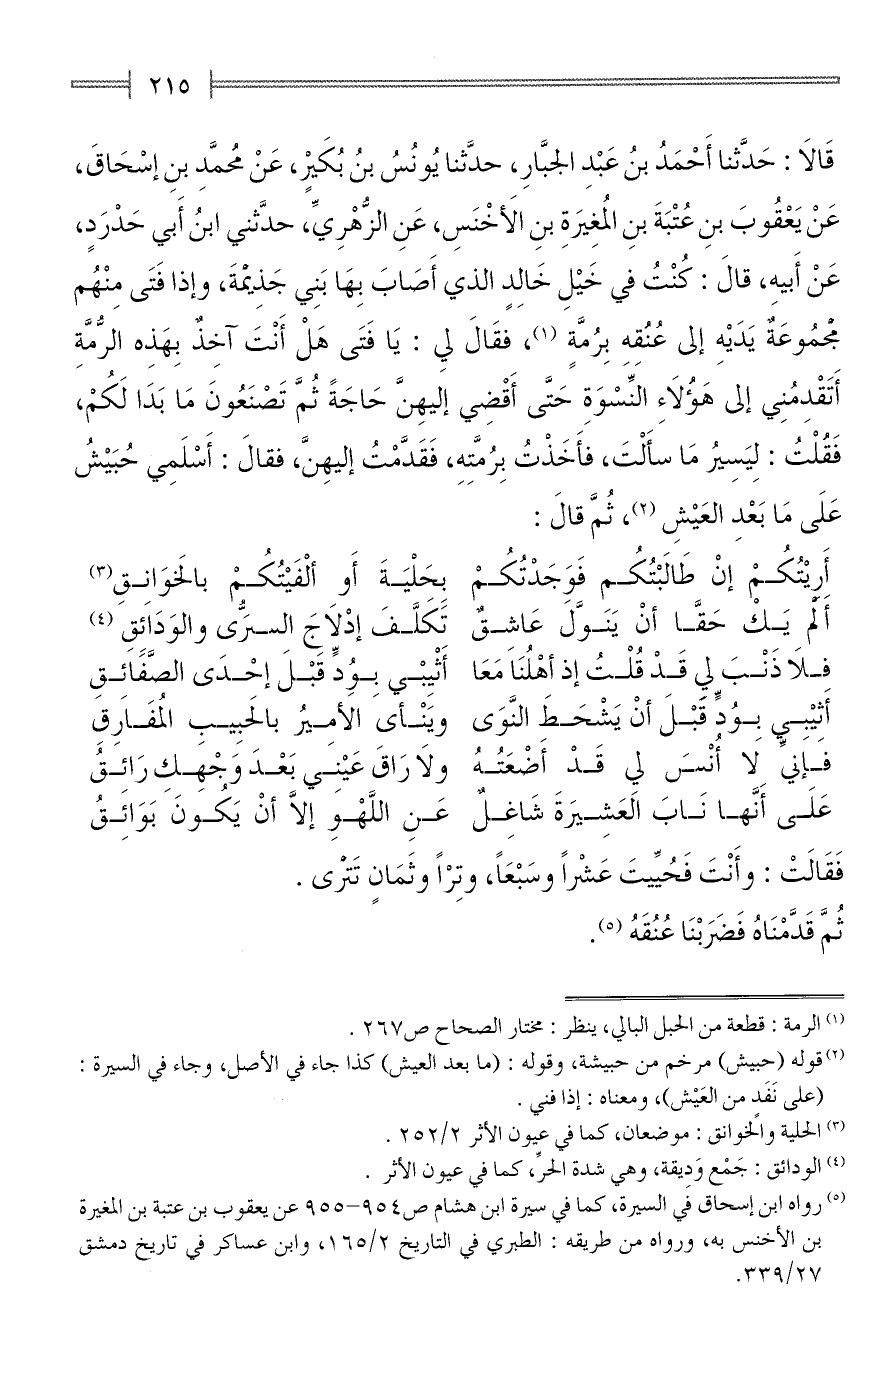 ٢١٥
قَالَا : حَدَّثنا أَحْمَدُ بنُ عَبْدِ الجبَّارِ، حدَّثنا يُونُسُ بنُ بُكَيْرٍ، عَنْ مُحمَّدِ بنِ إسْحَاقَ،
عَنْ يَعْقُوبَ بنِ عُتْبَةَ بنِ المُغيَرةِ بنِ الأَخْنَسِ، عَنِ الزُّهْريِّ، حدَّثني ابنُ أَبي حَدْرَدٍ،
عَنْ أَبيه، قالَ : كُنْتُ في خَيْلِ خَالدٍ الذي أَصَابَ بهَا بَنِي جَذيْمَةَ، وإذا فَتَى منْهُم
مجْمُوعَةٌ يَدَيْهِ إلى عُنُقهِ برُمَّةٍ (١)، فقَالَ لي : يَا فَتَى هَلْ أَنْتَ آخذٌ بهَذه الرُّمَّةِ
أَتَقْدِمُني إلى هَؤُلَاءِ النِّسْوَةِ حَتَّى أَقْضِي إليهنَّ حَاجَةً ثُمَّ تَصْنَعُونَ مَا بَدَا لَكُمْ،
فَقُلْتُ : ليَسيرُ مَا سألْتَ، فأَخَذْتُ برُمَّته، فَقَدَّمْتُ إليهنَّ، فقالَ : أَسْلَمِي حُبَيْشُ
عَلَى مَا بَعْدِ العَيْشِ (٢)، ثُمَّ قالَ :
أَرِيْتُكُـمْ إنْ طَالَبْتُكُـم فَوَجَدْتُكُـمْ بحَلْيَـةَ أو ألْفَيْتُكُـمْ بالخَوَانـقِ(٣)
أَلَمْ يَـكُ حَقَّـا أنْ يَنَـوَّلَ عَاشـقٌ تَكَلَّـفَ إدْلَاجَ السـرَّى والوَدَائقِ (٤)
فـلَا ذَنْـبَ لي قَـدْ قُلْـتُ إذ أهْلُنَا مَعَا أثيْبِـي بـوُدٍّ قَبْـلَ إحْـدَى الصَّفَائـقِ
أثيْبِـي بـوُدٍّ قَبْـلَ أنْ يَشْحَـطَ النَّوَى ويَنْـأى الأميْرُ بالحَبيـبِ المُفَـارِقِ
فـإنيِّ لا أُنْسَـ لي قَـدْ أضَعْتُـهُ ولَا رَاقَ عَيْنـي بَعْـدَ وَجْهـكِ رَائـقُ
عَلَـى أنَّهـا نَـابَ العَشـيرَةَ شَاغـلٌ عَـنِ اللَّهْـوِ إلاَّ أنْ يَكُـونَ بَوَائـقُ
فَقَالَتْ : وأَنْتَ فَحُيِّيتَ عَشْراً وسَبْعَاً، وترْاً وثَمَانٍ تَتْرَى .
ثُمَّ قَدَّمْنَاهُ فَضَرَبْنَا عُنُقَهُ (٥).
(١) الرمة : قطعة من الحبل البالي، ينظر : مختار الصحاح ص٢٦٧ .
(٢) قوله (حبيش) مرخم من حبيشة، وقوله : (ما بعد العيش) كذا جاء في الأصل، وجاء في السيرة :
(على نَفَدٍ من العَيْشِ)، ومعناه : إذا فني .
(٣) الحلية والخوانق : موضعان، كما في عيون الأثر ٢٥٢/٢ .
(٤) الودائق : جَمْع وَدِيقة، وهي شدة الحرِّ، كما في عيون الأثر .
(٥) رواه ابن إسحاق في السيرة، كما في سيرة ابن هشام ص٩٥٤-٩٥٥ عن يعقوب بن عتبة بن المغيرة
بن الأخنس به، ورواه من طريقه : الطبري في التاريخ ١٦٥/٢، وابن عساكر في تاريخ دمشق
٣٣٩/٢٧.